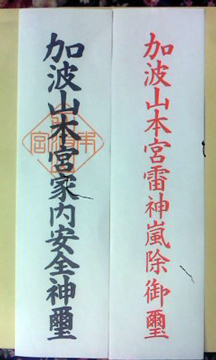 加波山本宮雷神嵐除御璽
加波山本宮家内安全神璽